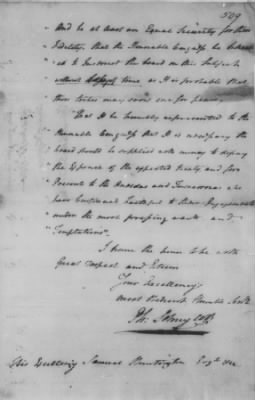 509
"And be at least an Equal Security for their
"Fidelity, that the Honorable Congress be
"ed to Instruct the board on this Subject
"without Loss of time as It is probable that
"those tribes may soon sue for peace,
"That it be humbly represented to the
"Honorable Congress that It is necessary the
"board should be supplied with money to defray
"the Expence of the expected treaty and for
"Presents to the Oneidas and Tuscaroras who
"have Continued faithful to their Engagements
"under the most pressing wants and
"Temptations".
I have the honor to be with
Great respect and Esteem
Your Excellency's
most Obedient Humble Servt
Ph: Schuyler
His Excellency Samuel Huntington Esqr &c